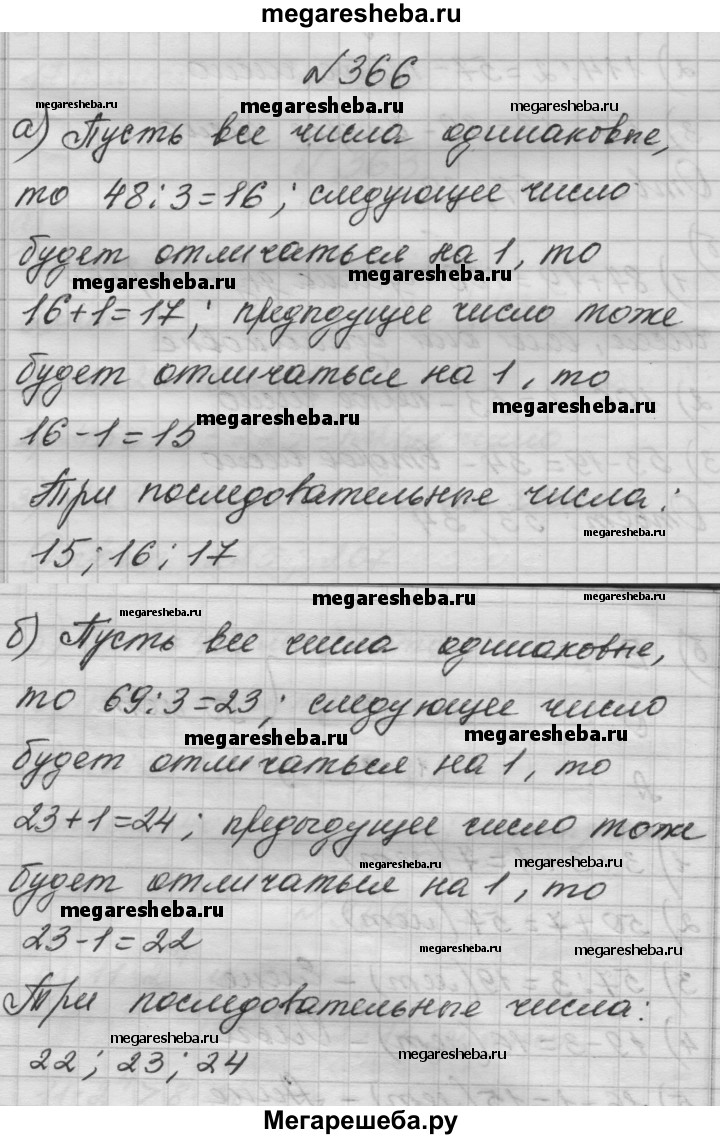 megaresheba.ru
№366
megaresheba.ru megaresheba.ru megaresheba.ru
а) Пусть все числа одинаковые,
то 48:3=16; следующее число
будет отличаться на 1, то
megaresheba.ru megaresheba.ru
16+1=17; предыдущее число тоже
будет отличаться на 1, то
megaresheba.ru megaresheba.ru
16-1=15
Три последовательные числа:
megaresheba.ru
15; 16; 17
megaresheba.ru megaresheba.ru megaresheba.ru
б) Пусть все числа одинаковые,
то 69:3=23; следующее число
megaresheba.ru megaresheba.ru
будет отличаться на 1, то
23+1=24; предыдущее число тоже
megaresheba.ru megaresheba.ru
будет отличаться на 1, то
megaresheba.ru
23-1=22
megaresheba.ru megaresheba.ru
Три последовательные числа:
megaresheba.ru megaresheba.ru
22; 23; 24
Мегарешеба.ру